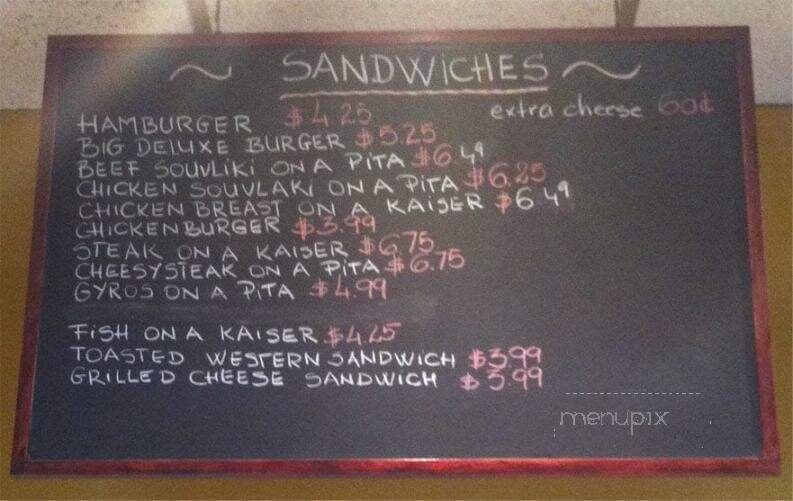 ~ SANDWICHES ~
extra cheese 60¢
HAMBURGER $4.25
BIG DELUXE BURGER $5.25
BEEF SOUVLIKI ON A PITA $6.49
CHICKEN SOUVLAKI ON A PITA $6.25
CHICKEN BREAST ON A KAISER $6.49
CHICKENBURGER $3.99
STEAK ON A KAISER $6.75
CHEESYSTEAK ON A PITA $6.75
GYROS ON A PITA $4.99
FISH ON A KAISER $4.25
TOASTED WESTERN SANDWICH $3.99
GRILLED CHEESE SANDWICH $3.99
menupix